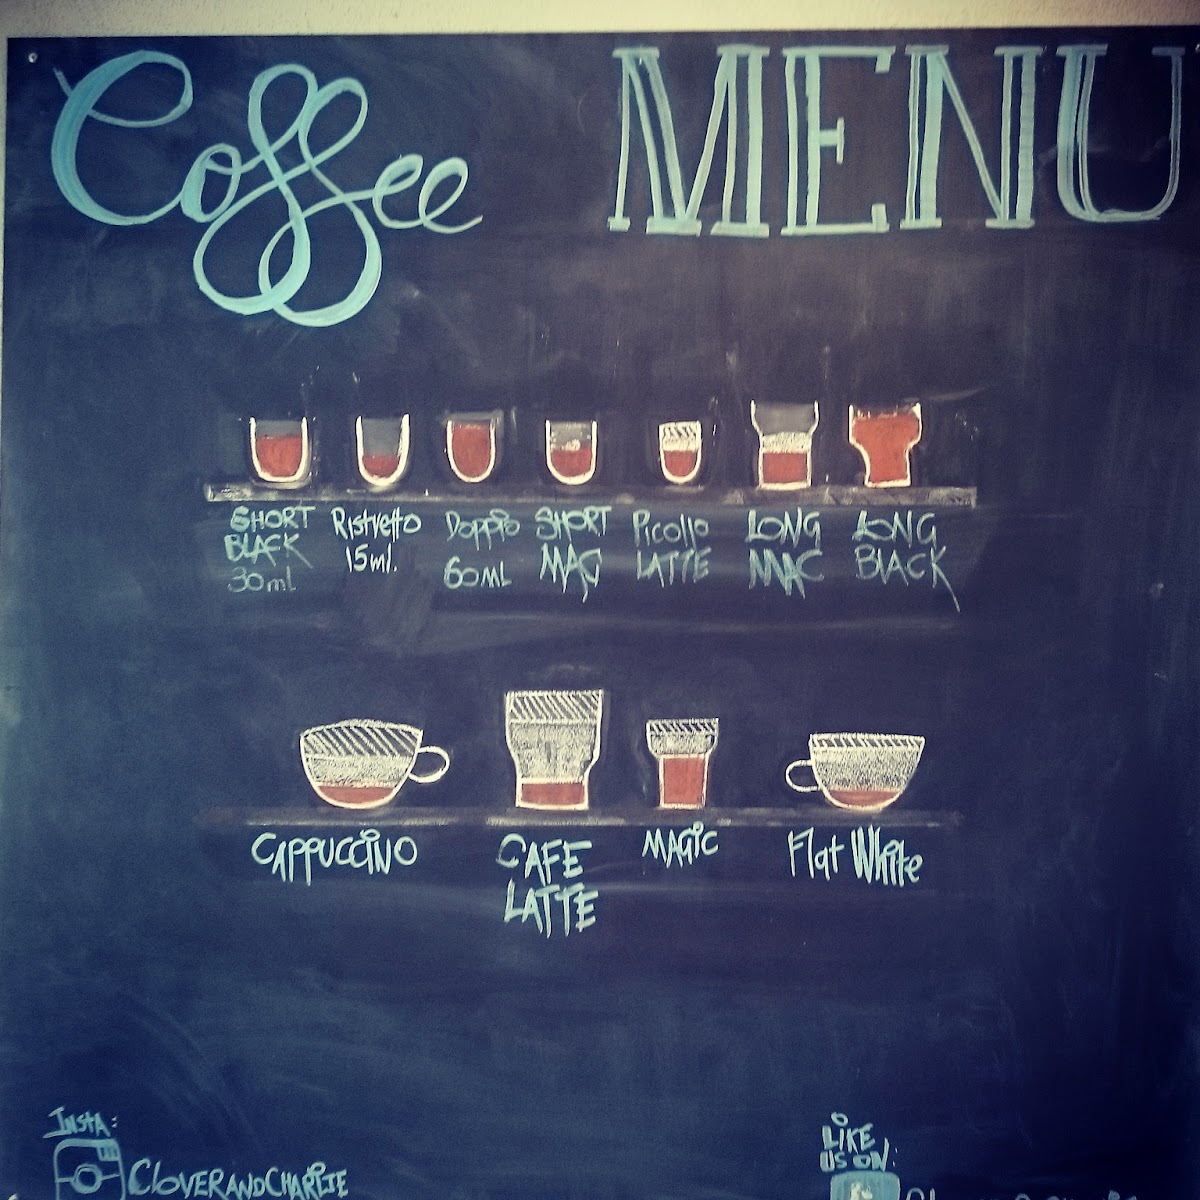 Coffee MENU
SHORT BLACK 30ml
Ristretto 15ml.
Doppio 60ML
SHORT MAC
Picollo LATTE
LONG MAC
LONG BLACK
CAPPUCCINO
CAFE LATTE
MAGIC
Flat White
INSTA:
CLOVERANDCHARLIE
LIKE US ON: